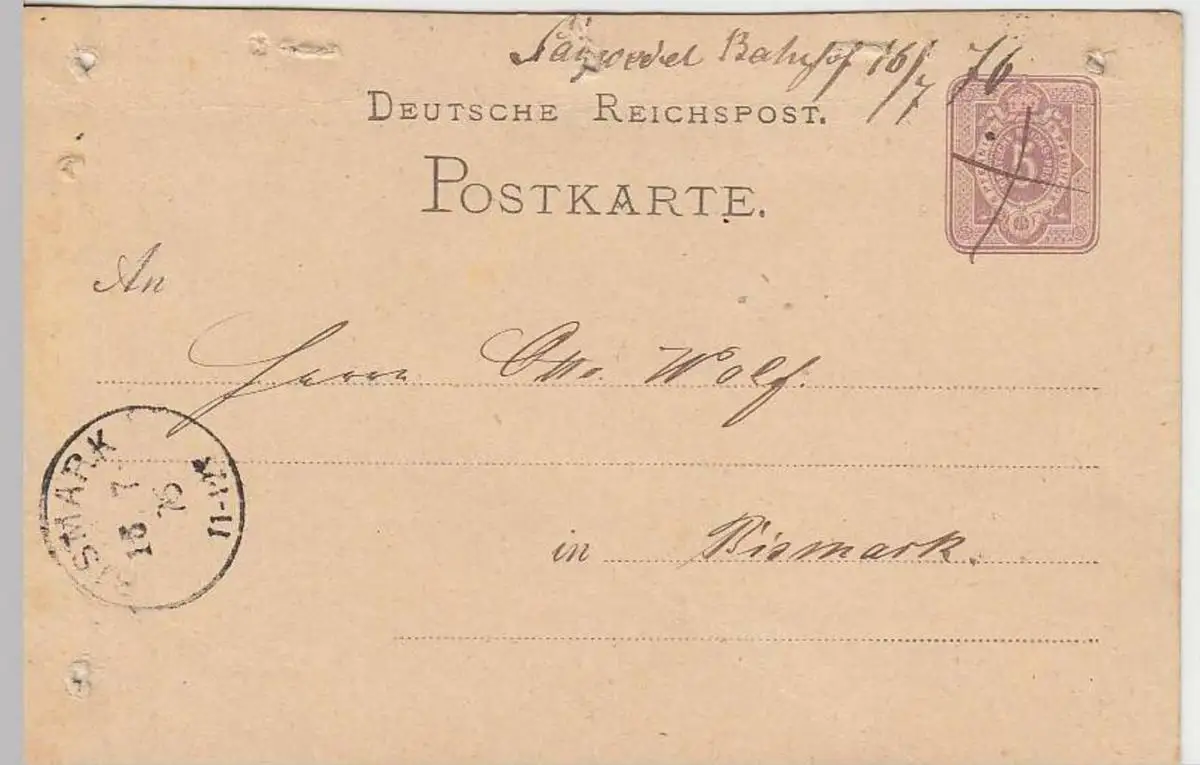 Bahnhof 16/7 76
DEUTSCHE REICHSPOST.
POSTKARTE.
An
Herrn Otto Wolf.
in Bismark.
BISMARK
7
76